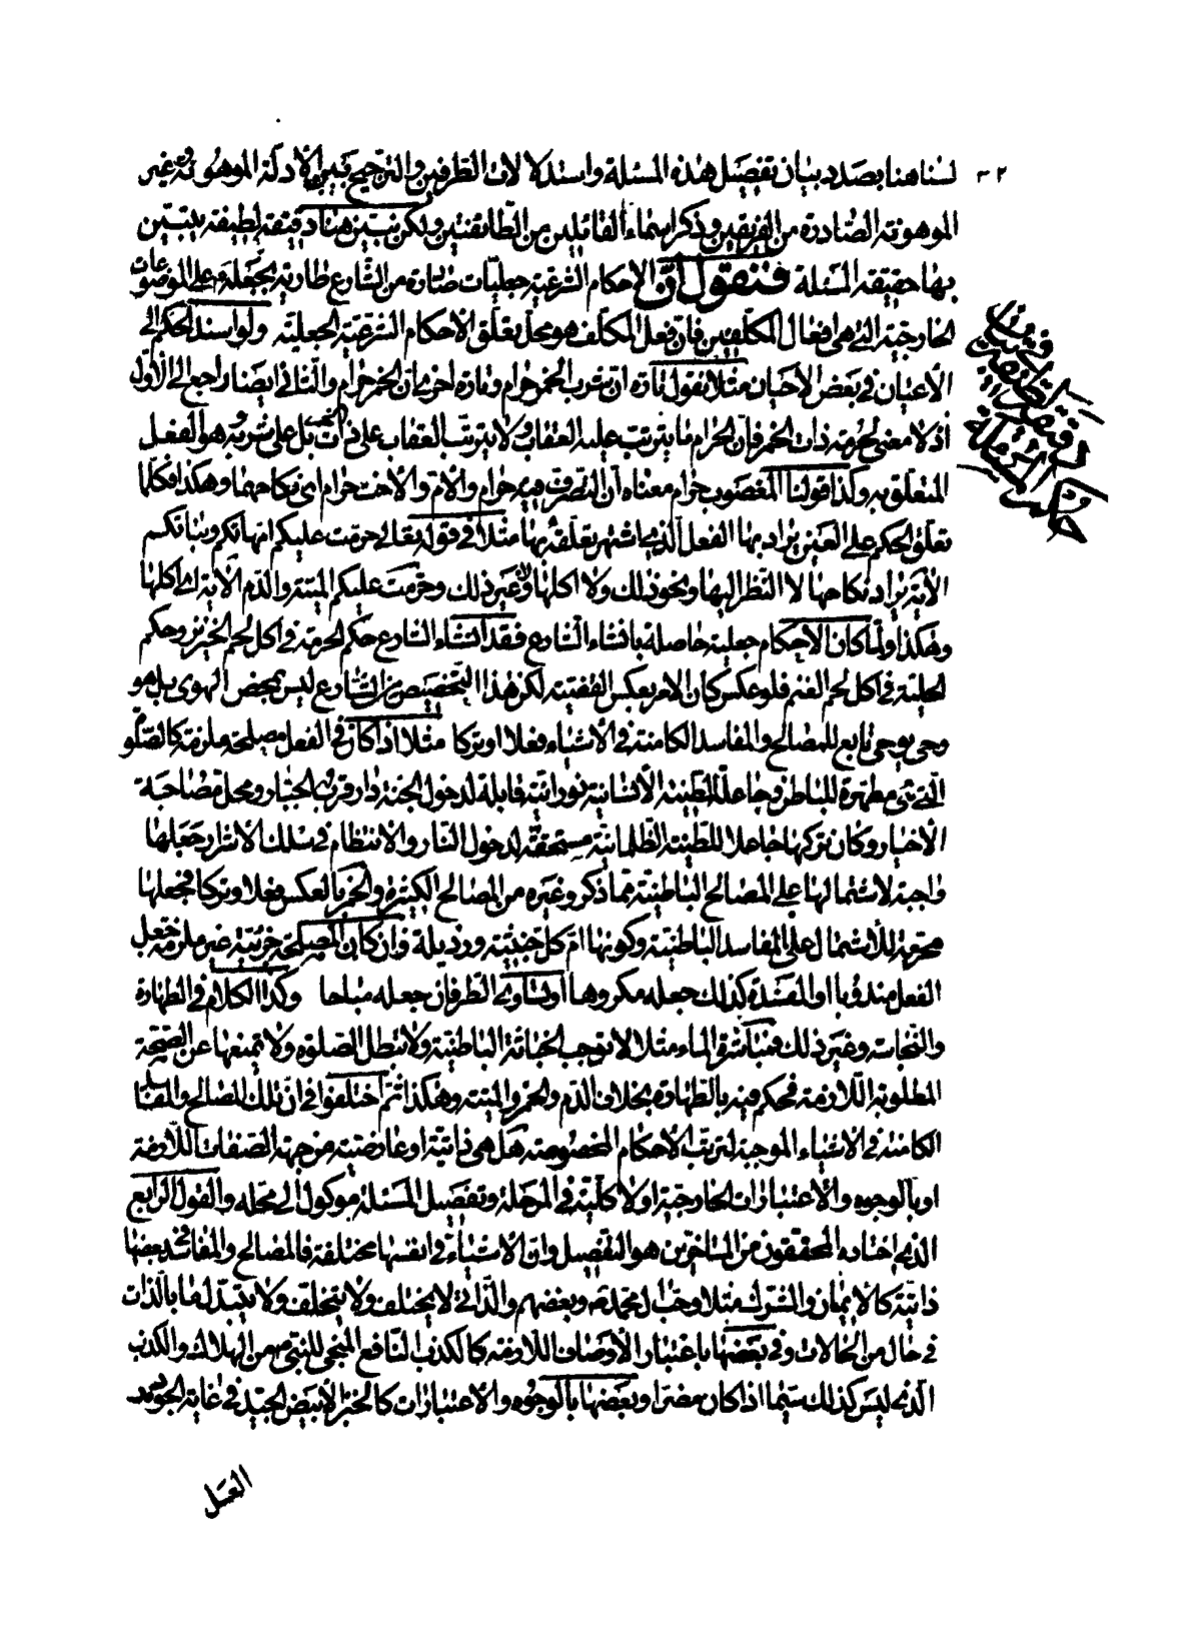 ٣٢
لسنا هنا بصدد بيان تفصيل هذه المسئلة واستدلالات الطرفين والترجيح بين الأدلة الموهونة وغير
الموهونة الصادرة من الفريقين وذكر اسماء القائلين من الطائفتين ولكن نبين هنا دقيقة لطيفة يتبين
بها حقيقة المسئلة فنقول ان الاحكام الشرعية جعليات صادرة من الشارع طارية بجعله على الموضوعات
الخارجية التي هي افعال المكلفين فان فعل المكلف هو محل تعلق الاحكام الشرعية الجعلية ولو اسند الحكم الى
الأعيان في بعض الأحيان مثلا نقول تارة ان شرب الخمر حرام وتارة اخرى ان الخمر حرام والثاني ايضا راجع الى الأول
اذ لا معنى لحرمة ذات الخمر فان الحرام ما يترتب عليه العقاب ولا يترتب العقاب على ذات الخمر بل على شربه هو الفعل
المتعلق به وكذا قولنا المغصوب حرام معناه ان التصرف فيه حرام والأم والأخت حرام اى نكاحهما وهكذا فكلما
تعلق الحكم على العين يراد بها الفعل الذي اشتهر تعلقه بها مثلا في قوله تعالى حرمت عليكم امهاتكم وبناتكم
الآية يراد نكاحها لا النظر اليها ونحو ذلك ولا اكلها وغير ذلك وحرمت عليكم الميتة والدم الآية اى اكلها
وهكذا ولما كان الاحكام جعلية حاصلة بانشاء الشارع فقد انشاء الشارع حكم الحرمة في اكل لحم الخنزير وحكم
الحلية في اكل لحم الغنم فلو عكس كان الامر بعكس القضية لكن هذا التخصيص من الشارع ليس بمحض الهوى بل هو
وحي يوحى تابع للمصالح والمفاسد الكامنة في الأشياء فعلا او تركا مثلا اذا كان في الفعل مصلحة ملزمة كالصلو
التي هي مطهرة للباطن وجاعلة للطينة الأنسانية نورانية قابلة لدخول الجنة دار قرب الجبار ومحل مصاحبة
الأخيار وكان تركها جاعلا للطينة الظلمانية مستحقة لدخول النار والانتظام في سلك الاشرار جعلها
واجبة لاشتمالها على المصالح الباطنية مما ذكر وغيره من المصالح الكثيرة والخمر بالعكس فعلا وتركا فجعلها
محرمة للأشتمال على المفاسد الباطنية وكونها ام كل خبيثة ورذيلة وان كان المصلحة جزئية غير ملزمة جعل
الفعل مندوبا او المفسدة كذلك جعله مكروها او تساوى الطرفان جعله مباحا وكذا الكلام في الطهارة
والنجاسة وغير ذلك فمباشرة الماء مثلا لا توجب الخباثة الباطنية ولا تبطل الصلوة ولا تمنعها عن الصحة
المطلوبة اللازمة فحكم فيه بالطهارة بخلاف الدم والخمر والميتة وهكذا ثم اختلفوا في ان تلك المصالح والمفاسد
الكامنة في الاشياء الموجبة لترتب الأحكام المخصوصة هل هى ذاتية او عارضية من جهة الصفات اللازمة
او بالوجوه والأعتبارات الخارجية او لا كلية في المرحلة وتفصيل المسئلة موكول الى محله والقول الرابع
الذي اختاره المحققون من المتأخرين هو التفصيل وان الاشياء في انفسها مختلفة فالمصالح والمفاسد في بعضها
ذاتية كالأيمان والشرك مثلا وحب ال محمد وبغضهم والذاتي لا يختلف ولا يتخلف ولا يتبدل ما بالذات
في حال من الحالات وفي بعضها باعتبار الأوصاف اللازمة كالكذب النافع المنجى للنبي من الهلاك والكذب
الذي ليس كذلك سيما اذا كان مضرا وبعضها بالوجوه والأعتبارات كالخبز الأبيض الجيد في غاية الجودة
العسل